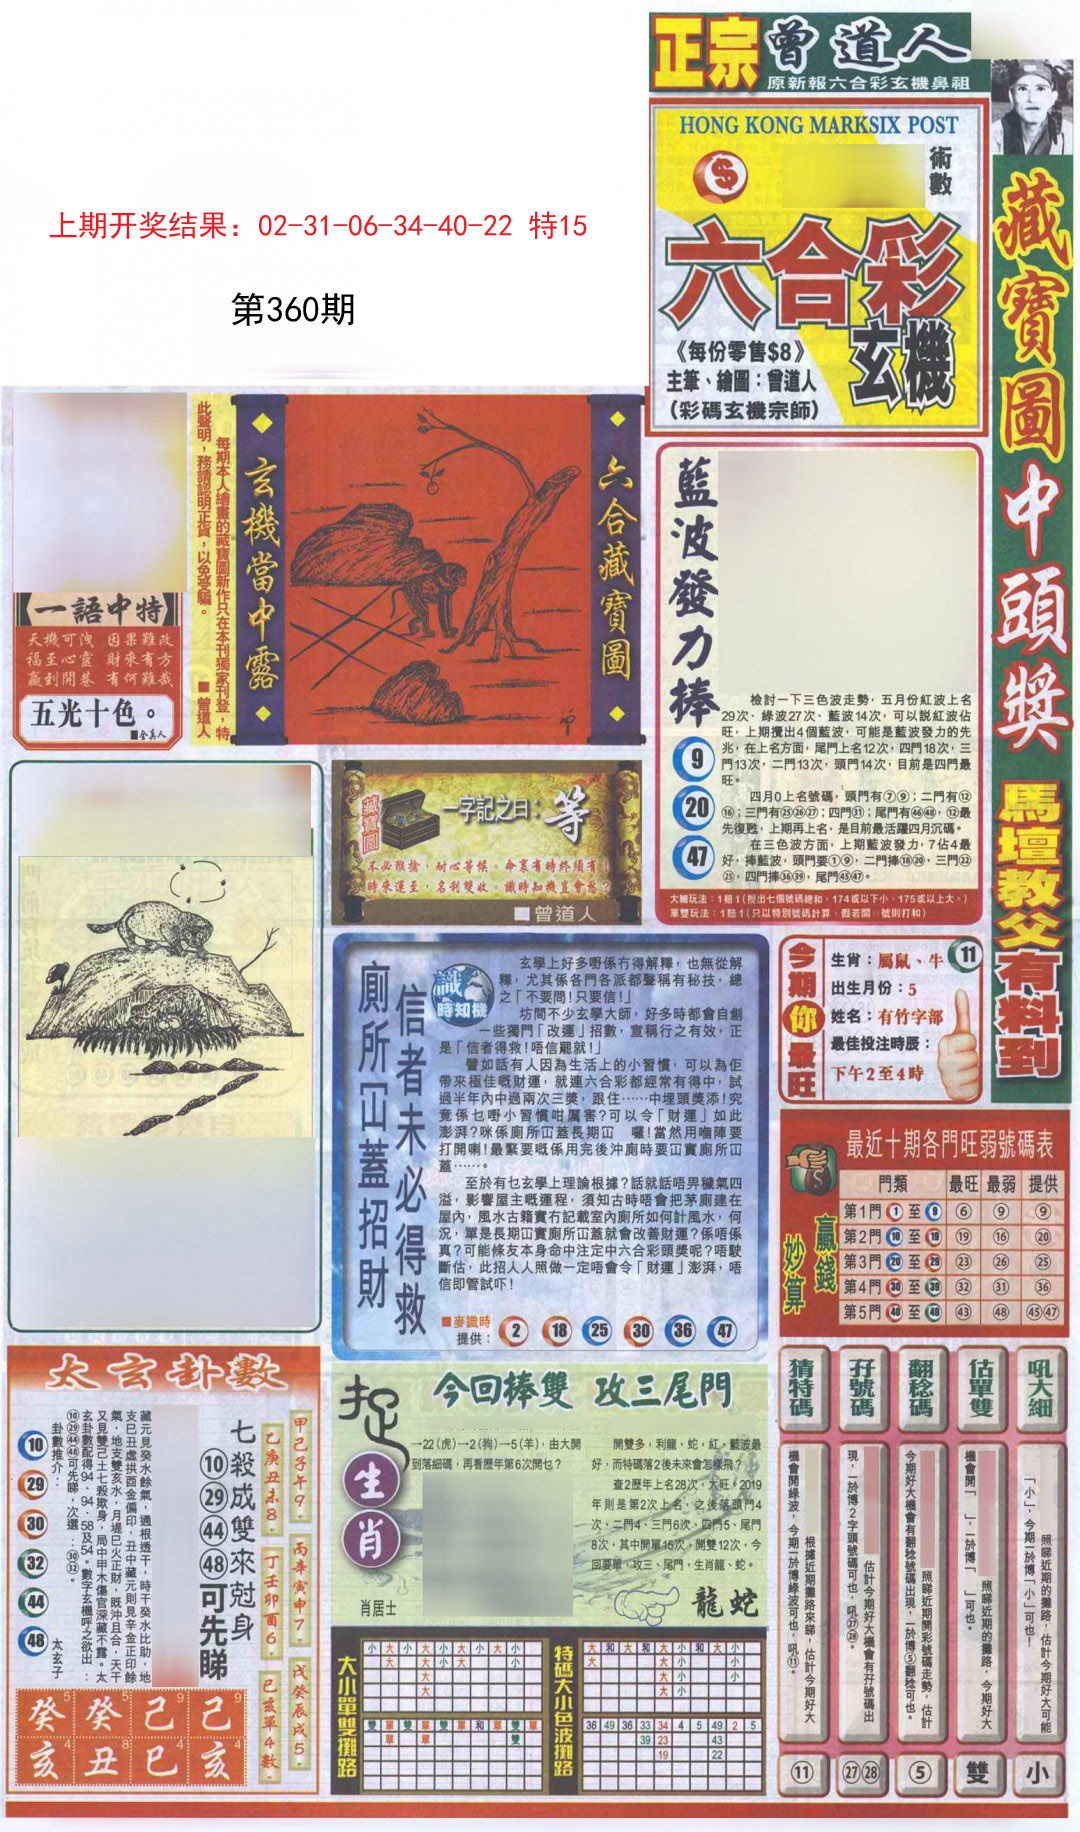 正宗曾道人
原新報六合彩玄機鼻祖
HONG KONG MARKSIX POST
術數
六合彩
玄機
《每份零售$8》
主筆、繪圖：曾道人
（彩碼玄機宗師）
藏寶圖中頭獎
馬壇教父有料到
上期开奖结果：02-31-06-34-40-22 特15
第360期
一語中特
天機可洩 因果難改
福至心靈 財來有方
贏到開巷 有何難哉
五光十色。
每期本人繪畫的藏寶圖新作只在本刊獨家刊登，特
此聲明，務請認明正貨，以免受騙。
■曾道人
玄機當中露
六合藏寶圖
藍波發力捧
9
20
47
檢討一下三色波走勢，五月份紅波上名
29次、綠波27次、藍波14次，可以説紅波佔
旺，上期攪出4個藍波，可能是藍波發力的先
兆，在上名方面，尾門上名12次，四門18次，三
門13次，二門13次，頭門14次，目前是四門最
旺。
四月0上名號碼，頭門有⑦⑨；二門有⑫
⑯；三門有㉕㉖㉗；四門㉛；尾門有㊻㊽，⑫最
先復甦，上期再上名，是目前最活躍四月沉碼。
在三色波方面，上期藍波發力，7佔4最
好，捧藍波，頭門要①⑨，二門捧⑱⑳，三門㉒
㉕，四門捧㊱㊴，尾門㊺㊼。
大細玩法：1賠1（攪出七個號碼總和，174或以下小，175或以上大。）
單雙玩法：1賠1（只以特別號碼計算，假若開49號則打和）
藏寶圖
一字記之曰：等
不必猴擒，耐心等候。命裏有時終須有！
時來運至，名利雙收。識時知機直會愁？
曾道人
今期你最旺
生肖：屬鼠、牛
11
出生月份：5
姓名：有竹字部
最佳投注時辰：
下午2至4時
廁所冚蓋招財
信者未必得救
識時知機
玄學上好多嘢係冇得解釋，也無從解
釋，尤其係各門各派都聲稱有秘技，總
之「不要問！只要信！」
坊間不少玄學大師，好多時都會自創
一些獨門「改運」招數，宣稱行之有效，正
是「信者得救！唔信罷就！」
譬如話有人因為生活上的小習慣，可以為佢
帶來極佳嘅財運，就連六合彩都經常有得中，試
過半年內中過兩次三獎，跟住……中埋頭獎添！究
竟係乜嘢小習慣咁厲害？可以令「財運」如此
澎湃？咪係廁所冚蓋長期冚 囉！當然用嗰陣要
打開喇！最緊要嘅係用完後沖廁時要冚實廁所冚
蓋……。
至於有乜玄學上理論根據？話就話唔畀穢氣四
溢，影響屋主嘅運程，須知古時唔會把茅廁建在
屋內，風水古籍實冇記載室內廁所如何計風水，何
況，單是長期冚實廁所冚蓋就會改善財運？係唔係
真？可能條友本身命中注定中六合彩頭獎呢？唔駛
斷估，此招人人照做一定唔會令「財運」澎湃，唔
信即管試吓！
■麥識時
提供：
2 18 25 30 36 47
最近十期各門旺弱號碼表
贏錢妙算
門類 最旺 最弱 提供
第1門 1 至 9 ⑥ ⑨ ⑨
第2門 10 至 19 ⑲ ⑯ ⑳
第3門 20 至 29 ㉓ ㉖ ㉕
第4門 30 至 39 ㉜ ㉛ ㊱
第5門 40 至 49 ㊸ ㊽ ㊺㊼
太玄卦數
七殺成雙來尅身
⑩㉙㊹㊽可先睇
藏元見癸水餘氣，通根透干，時干癸水比助，地
支巳丑虛拱酉金偏印，丑中藏元則見辛金正印餘
氣，地支雙亥水，月堤巳火正財，既沖且合，天干
又見雙己土七殺欺身，局中甲木傷官深藏不露。太
玄卦數配得94、94、58及54。數字玄機呼之欲出：
⑩㉙㊹㊽可先睇，次選：㉚㉜。
卦數推介：
10
29
30
32
44
48
太玄子
甲己子午9．
乙庚丑未8．
丙辛寅申7．
丁壬卯酉6．
戊癸辰戌5．
巳亥單4數．
癸5 癸5 己9 己9
亥4 丑8 巳4 亥4
捉生肖
今回捧雙 攻三尾門
一22(虎)→2(狗)→5(羊)，由大開
到落細碼，再看歷年第6次開乜？
開雙多，利龍、蛇，紅、藍波最
好，而特碼落2後未來會怎樣飛？
查2歷年上名28次，大旺。2019
年則是第2次上名，之後落頭門4
次、二門4、三門6次、四門5、尾門
8次，其中開單15次，開雙12次，今
回要單，攻三、尾門，生肖龍、蛇。
肖居士
龍 蛇
大小單雙攤路
小 大 小 大 小 大 小 大 小
大 大 小 大 大 小
大
大
雙 單 雙 單 雙 單 和 單 雙 單
單 單 雙
特碼大小色波攤路
大 和 大 和 大 小 和 大 小
大 大 小 小
大 小 小
大 小
36 49 36 33 34 4 5 49 2 5
39 23 43
19 22
猜特碼
根據近期攤路來睇，估計今期好大
機會開綠波，今期一於博綠波可也，吼⑪。
⑪
孖號碼
估計今期好大機會有孖號碼出
現，一於博2字頭號碼可也，吼㉗㉘。
㉗㉘
翻稔碼
照睇近期開彩號碼走勢，估計
今期好大機會有翻稔號碼出現，一於博⑤翻稔可也。
⑤
估單雙
照睇近期的攤路，今期好大
機會開「 」，一於博「 」可也。
雙
吼大細
照睇近期的攤路，估計今期好大可能
「小」，今期一於博「小」可也！
小